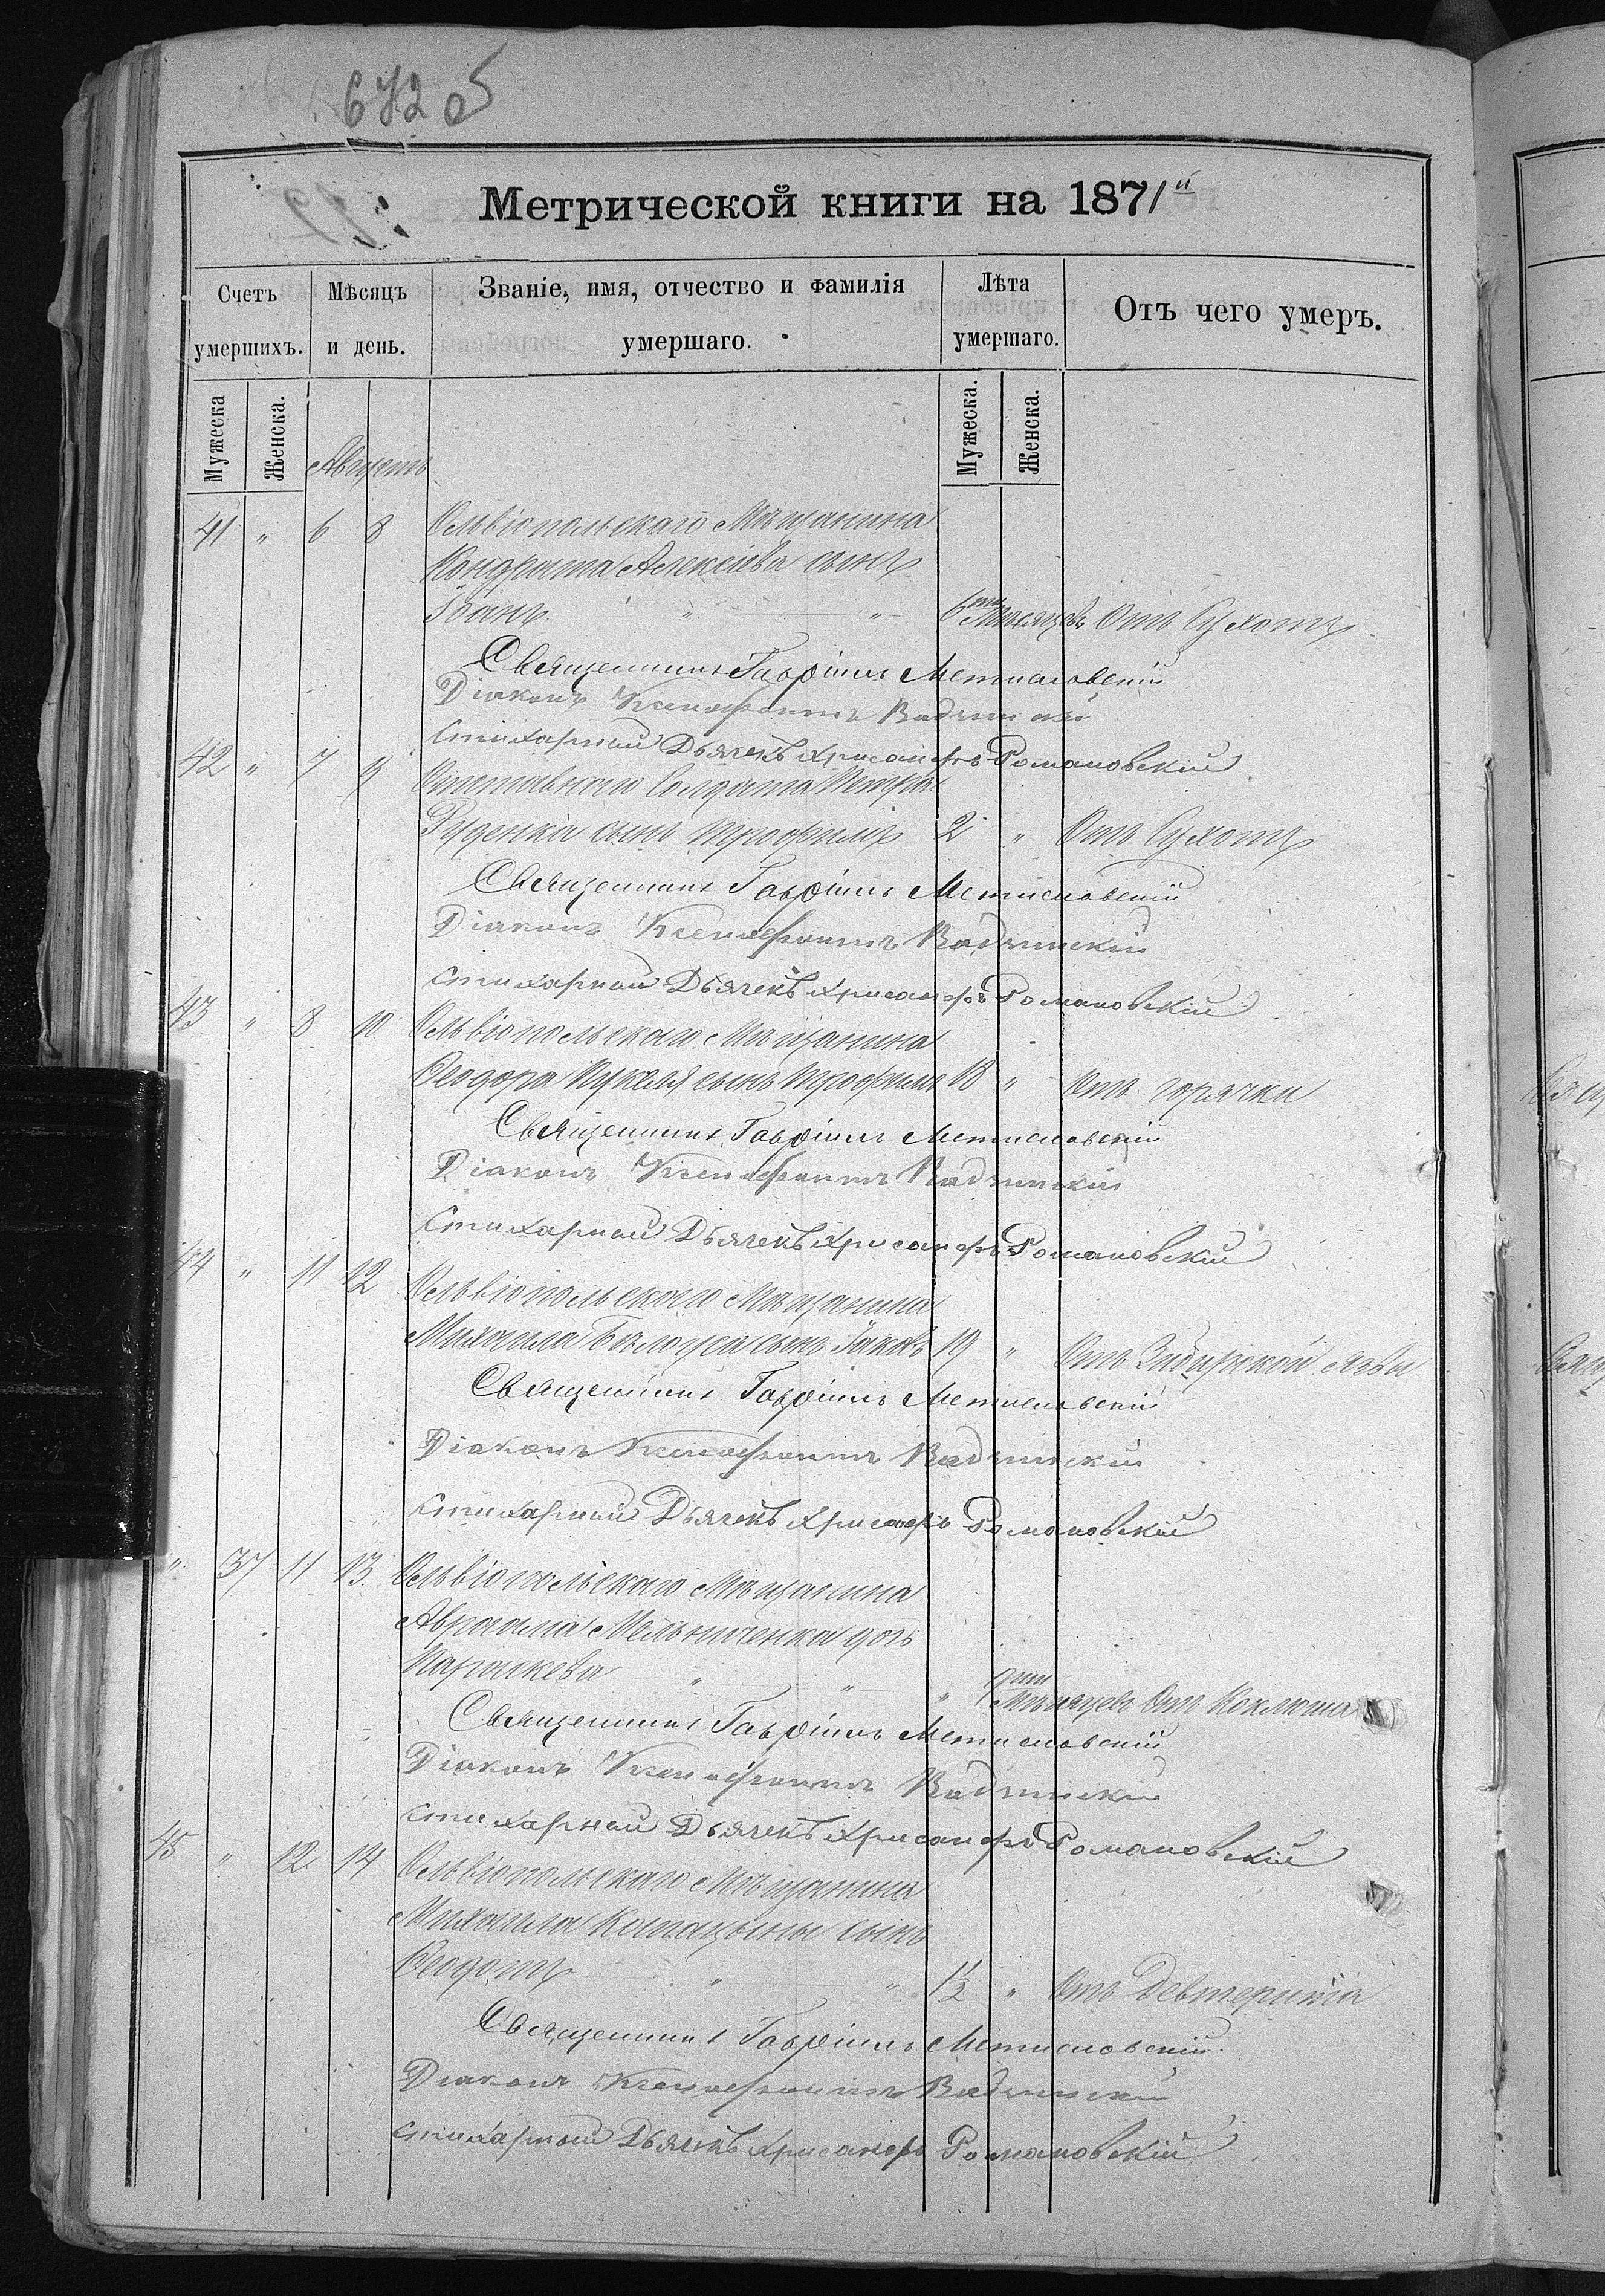 672 об
Метрической книги на 1871й
Счетъ умершихъ.
Мѣсяцъ и день.
Званіе, имя, отчество и фамилія умершаго.
Лѣта умершаго.
Отъ чего умеръ.
Мужеска
Женска.
Мужеска.
Женска.
Августъ
41 " 6 8 Ольвіопольскаго Мѣщанина
Кондрата Алексѣева сынъ
Іоанъ " " 6ти Мѣсяцевъ Отъ Сухотъ
Священникъ Гавріилъ Метиславскій
Діаконъ Ксенофонтъ
Стихарный Дьячекъ Хрисанфъ Романовскій
42 " 7 9 Отставнаго Солдата Петра
Руденка сынъ Трофимъ 2 " Отъ Сухотъ
Священникъ Гавріилъ Метиславскій
Діаконъ Ксенофонтъ
Стихарный Дьячекъ Хрисанфъ Романовскій
43 " 8 10 Ольвіопольскаго Мѣщанина
Ѳеодора Кукеля сынъ Трофимъ 18 " Отъ горячки
Священникъ Гавріилъ Метиславскій
Діаконъ Ксенофонтъ
Стихарный Дьячекъ Хрисанфъ Романовскій
44 " 11 12 Ольвіопольскаго Мѣщанина
Михаила Бѣлоуса сынъ Іаковъ 19 " Отъ Сибирской язвы
Священникъ Гавріилъ Метиславскій
Діаконъ Ксенофонтъ
Стихарный Дьячекъ Хрисанфъ Романовскій
" 37 11 13 Ольвіопольскаго Мѣщанина
Авраама Мельниченка дочь
Параскева " " " 9ти Мѣсяцевъ Отъ Коклюша
Священникъ Гавріилъ Метиславскій
Діаконъ Ксенофонтъ
Стихарный Дьячекъ Хрисанфъ Романовскій
45 " 12 14 Ольвіопольскаго Мѣщанина
Михаила сынъ
Ѳеодотъ " " 1/2 " Отъ Девтерита
Священникъ Гавріилъ Метиславскій
Діаконъ Ксенофонтъ
Стихарный Дьячекъ Хрисанфъ Романовскій